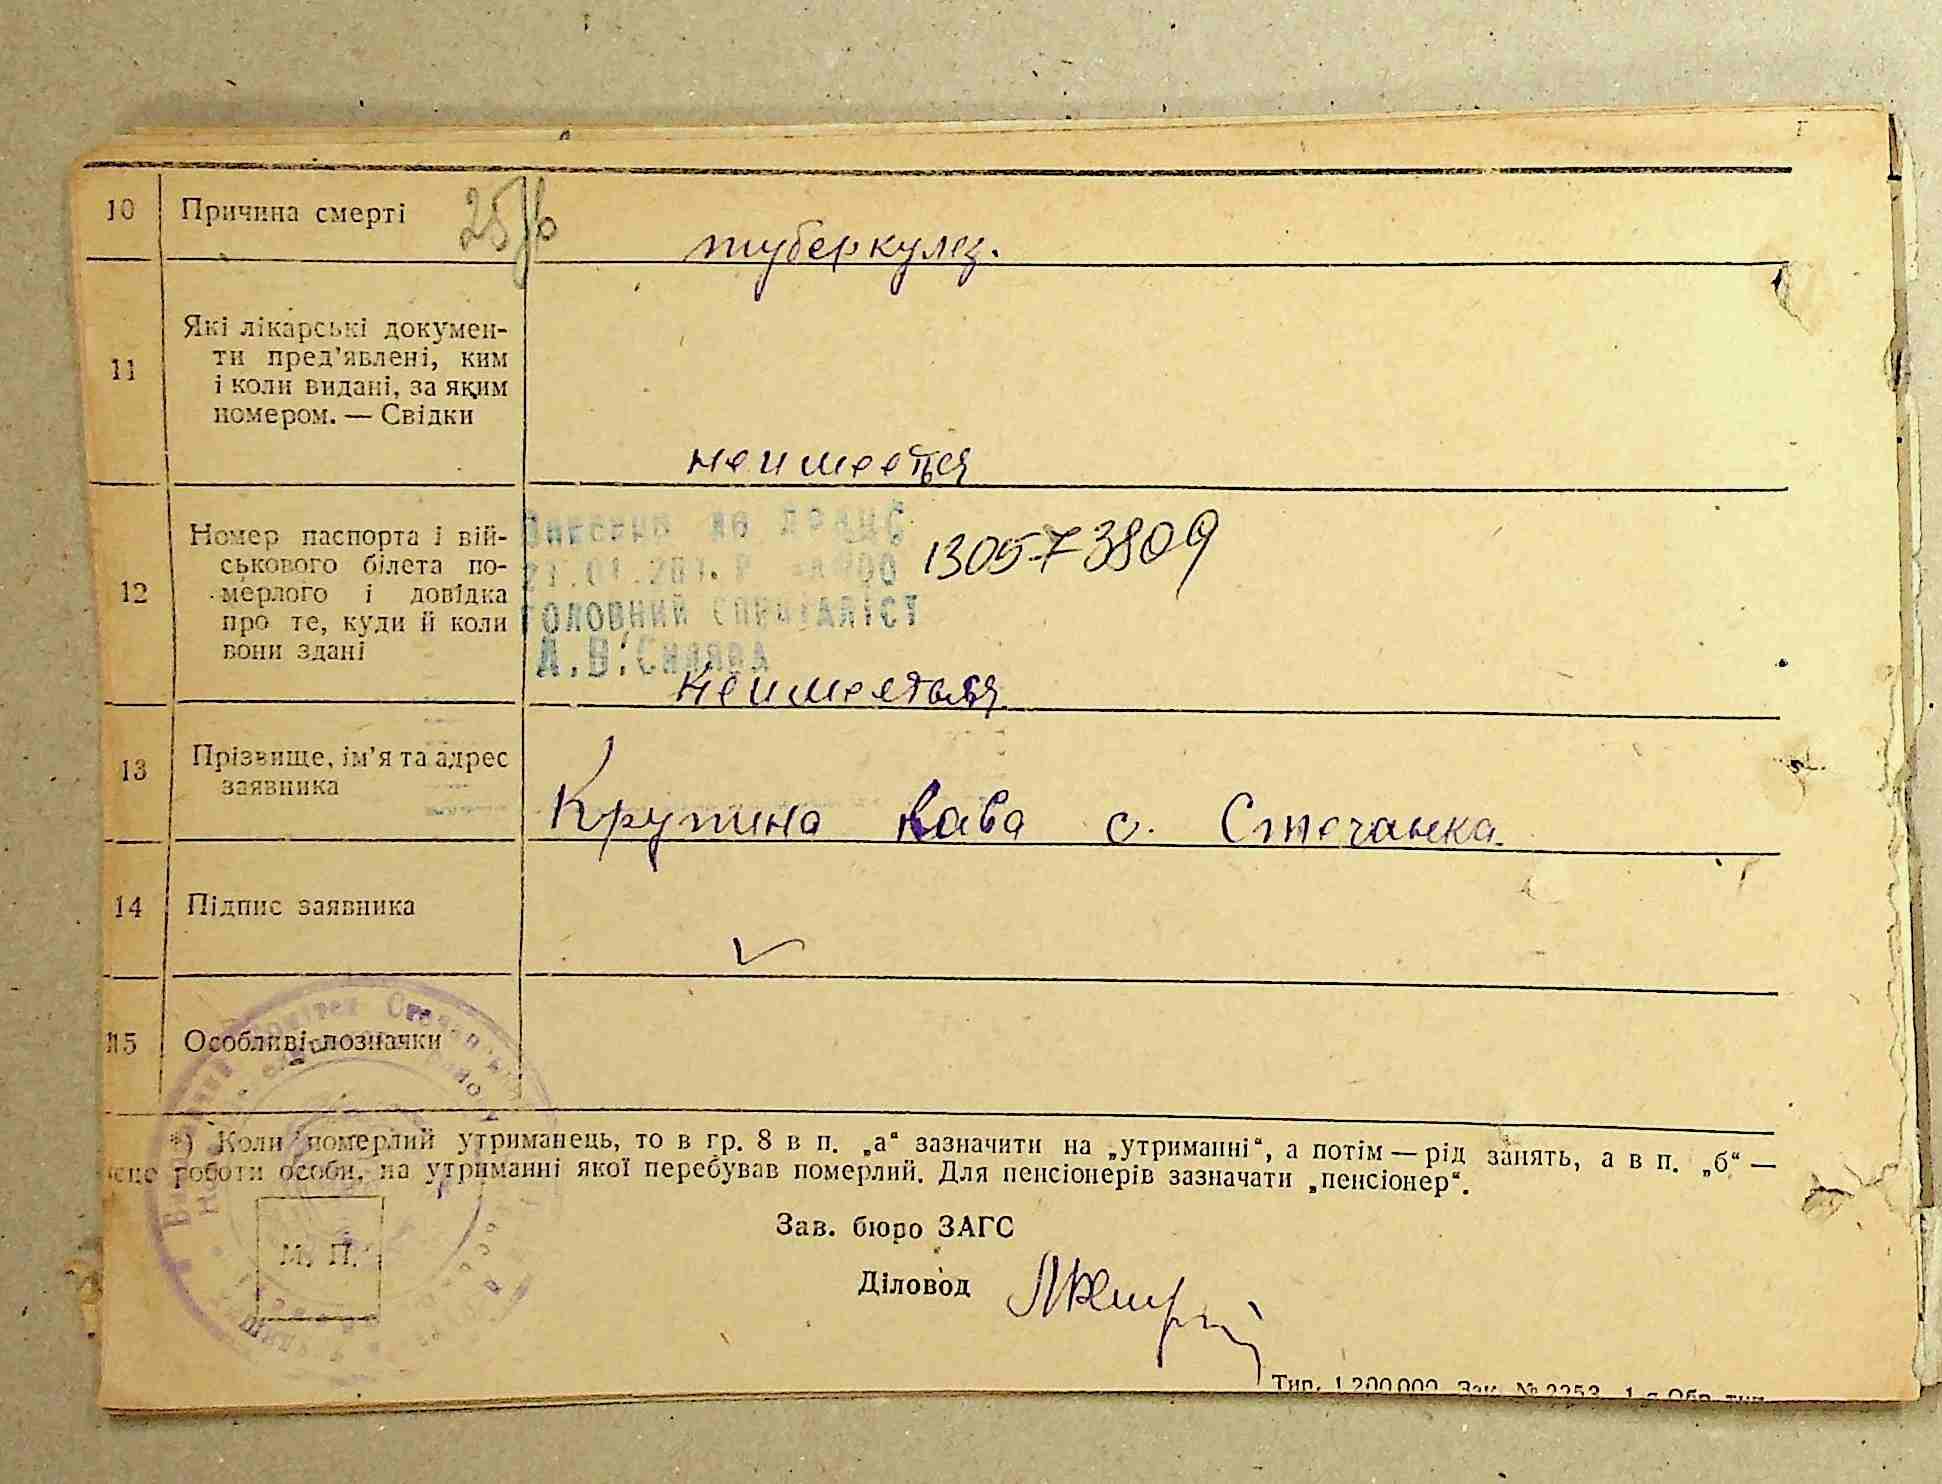 10 Причина смерті 25/6 туберкулез.
11 Які лікарські докумен-
ти пред'явлені, ким
і коли видані, за яким
номером. — Свідки
неимеется
12 Номер паспорта і вій-
ськового білета по-
мерлого і довідка
про те, куди й коли
вони здані
Внесено до ДРАЦС
130573809
ГОЛОВНИЙ СПЕЦІАЛІСТ
А.В.
неимееться
13 Прізвище, ім'я та адрес
заявника
Крупина с. Стечанка.
14 Підпис заявника
15 Особливі позначки
*) Коли померлий утриманець, то в гр. 8 в п. „а“ зазначити на „утриманні“, а потім — рід занять, а в п. „б“ —
роботи особи, на утриманні якої перебував померлий. Для пенсіонерів зазначати „пенсіонер“.
М. П.
Зав. бюро ЗАГС
Діловод
Тир. 1.200.000 Зак. № 2253